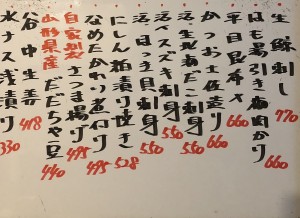 生 刺し 770
はも湯引き梅肉かけ 660
平目昆布〆 660
かつお土佐造り 660
活北海だこ刺身 550
活〆スズキ刺身 550
活 貝刺身 550
にしん粕漬け焼き 528
なめたかれい煮付け 495
自家製さつま揚げ 495
山形県産だだちゃ豆 440
谷中生姜 418
水ナス浅漬け 330